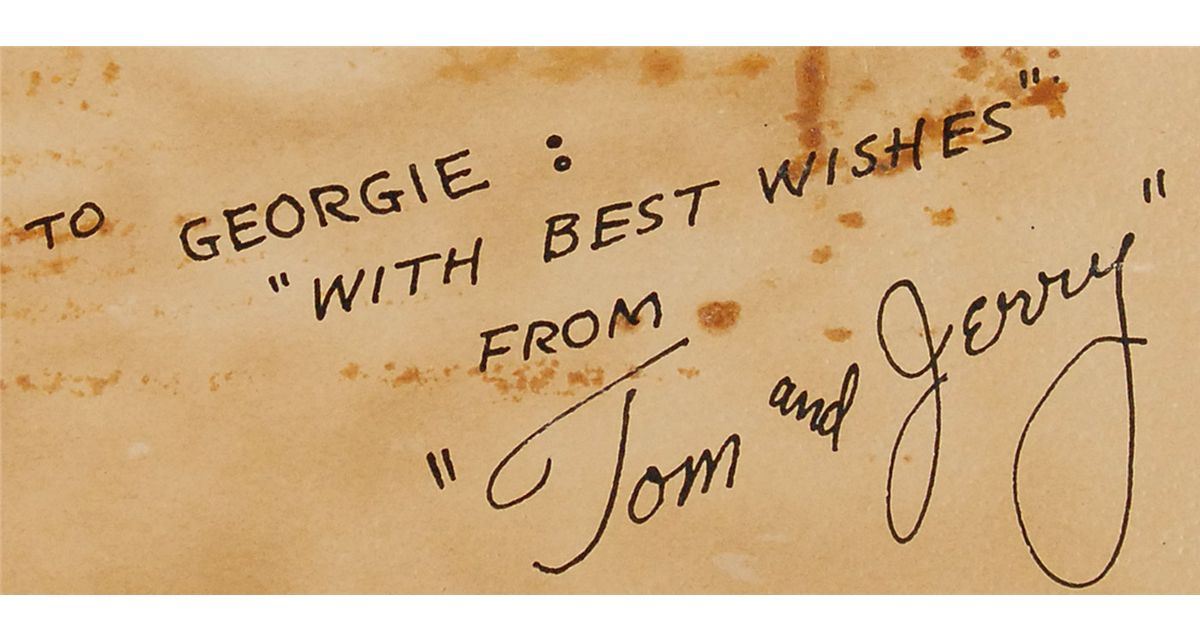 TO GEORGIE :
"WITH BEST WISHES".
FROM
"Tom and Jerry"